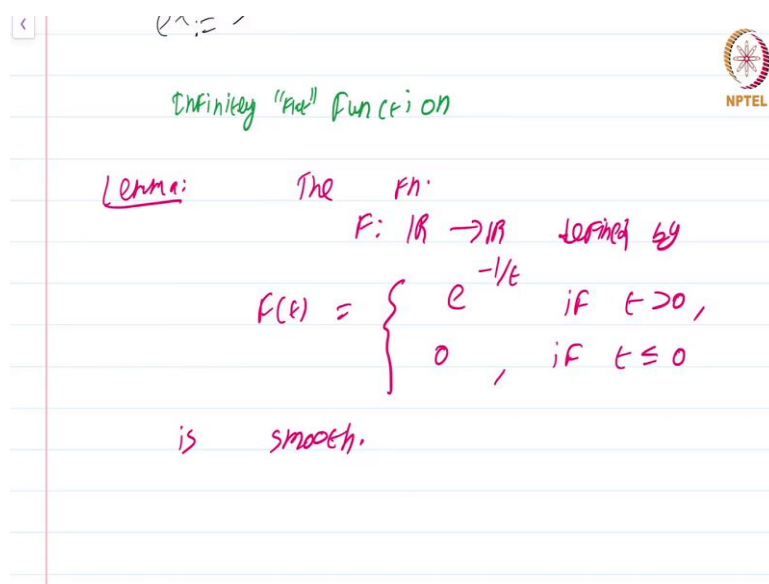 NPTEL
Infinitely "Flat" Function
Lemma: The Fn.
F: ℝ → ℝ defined by
F(t) = { e^{-1/t} if t > 0,
0, if t ≤ 0
is smooth.